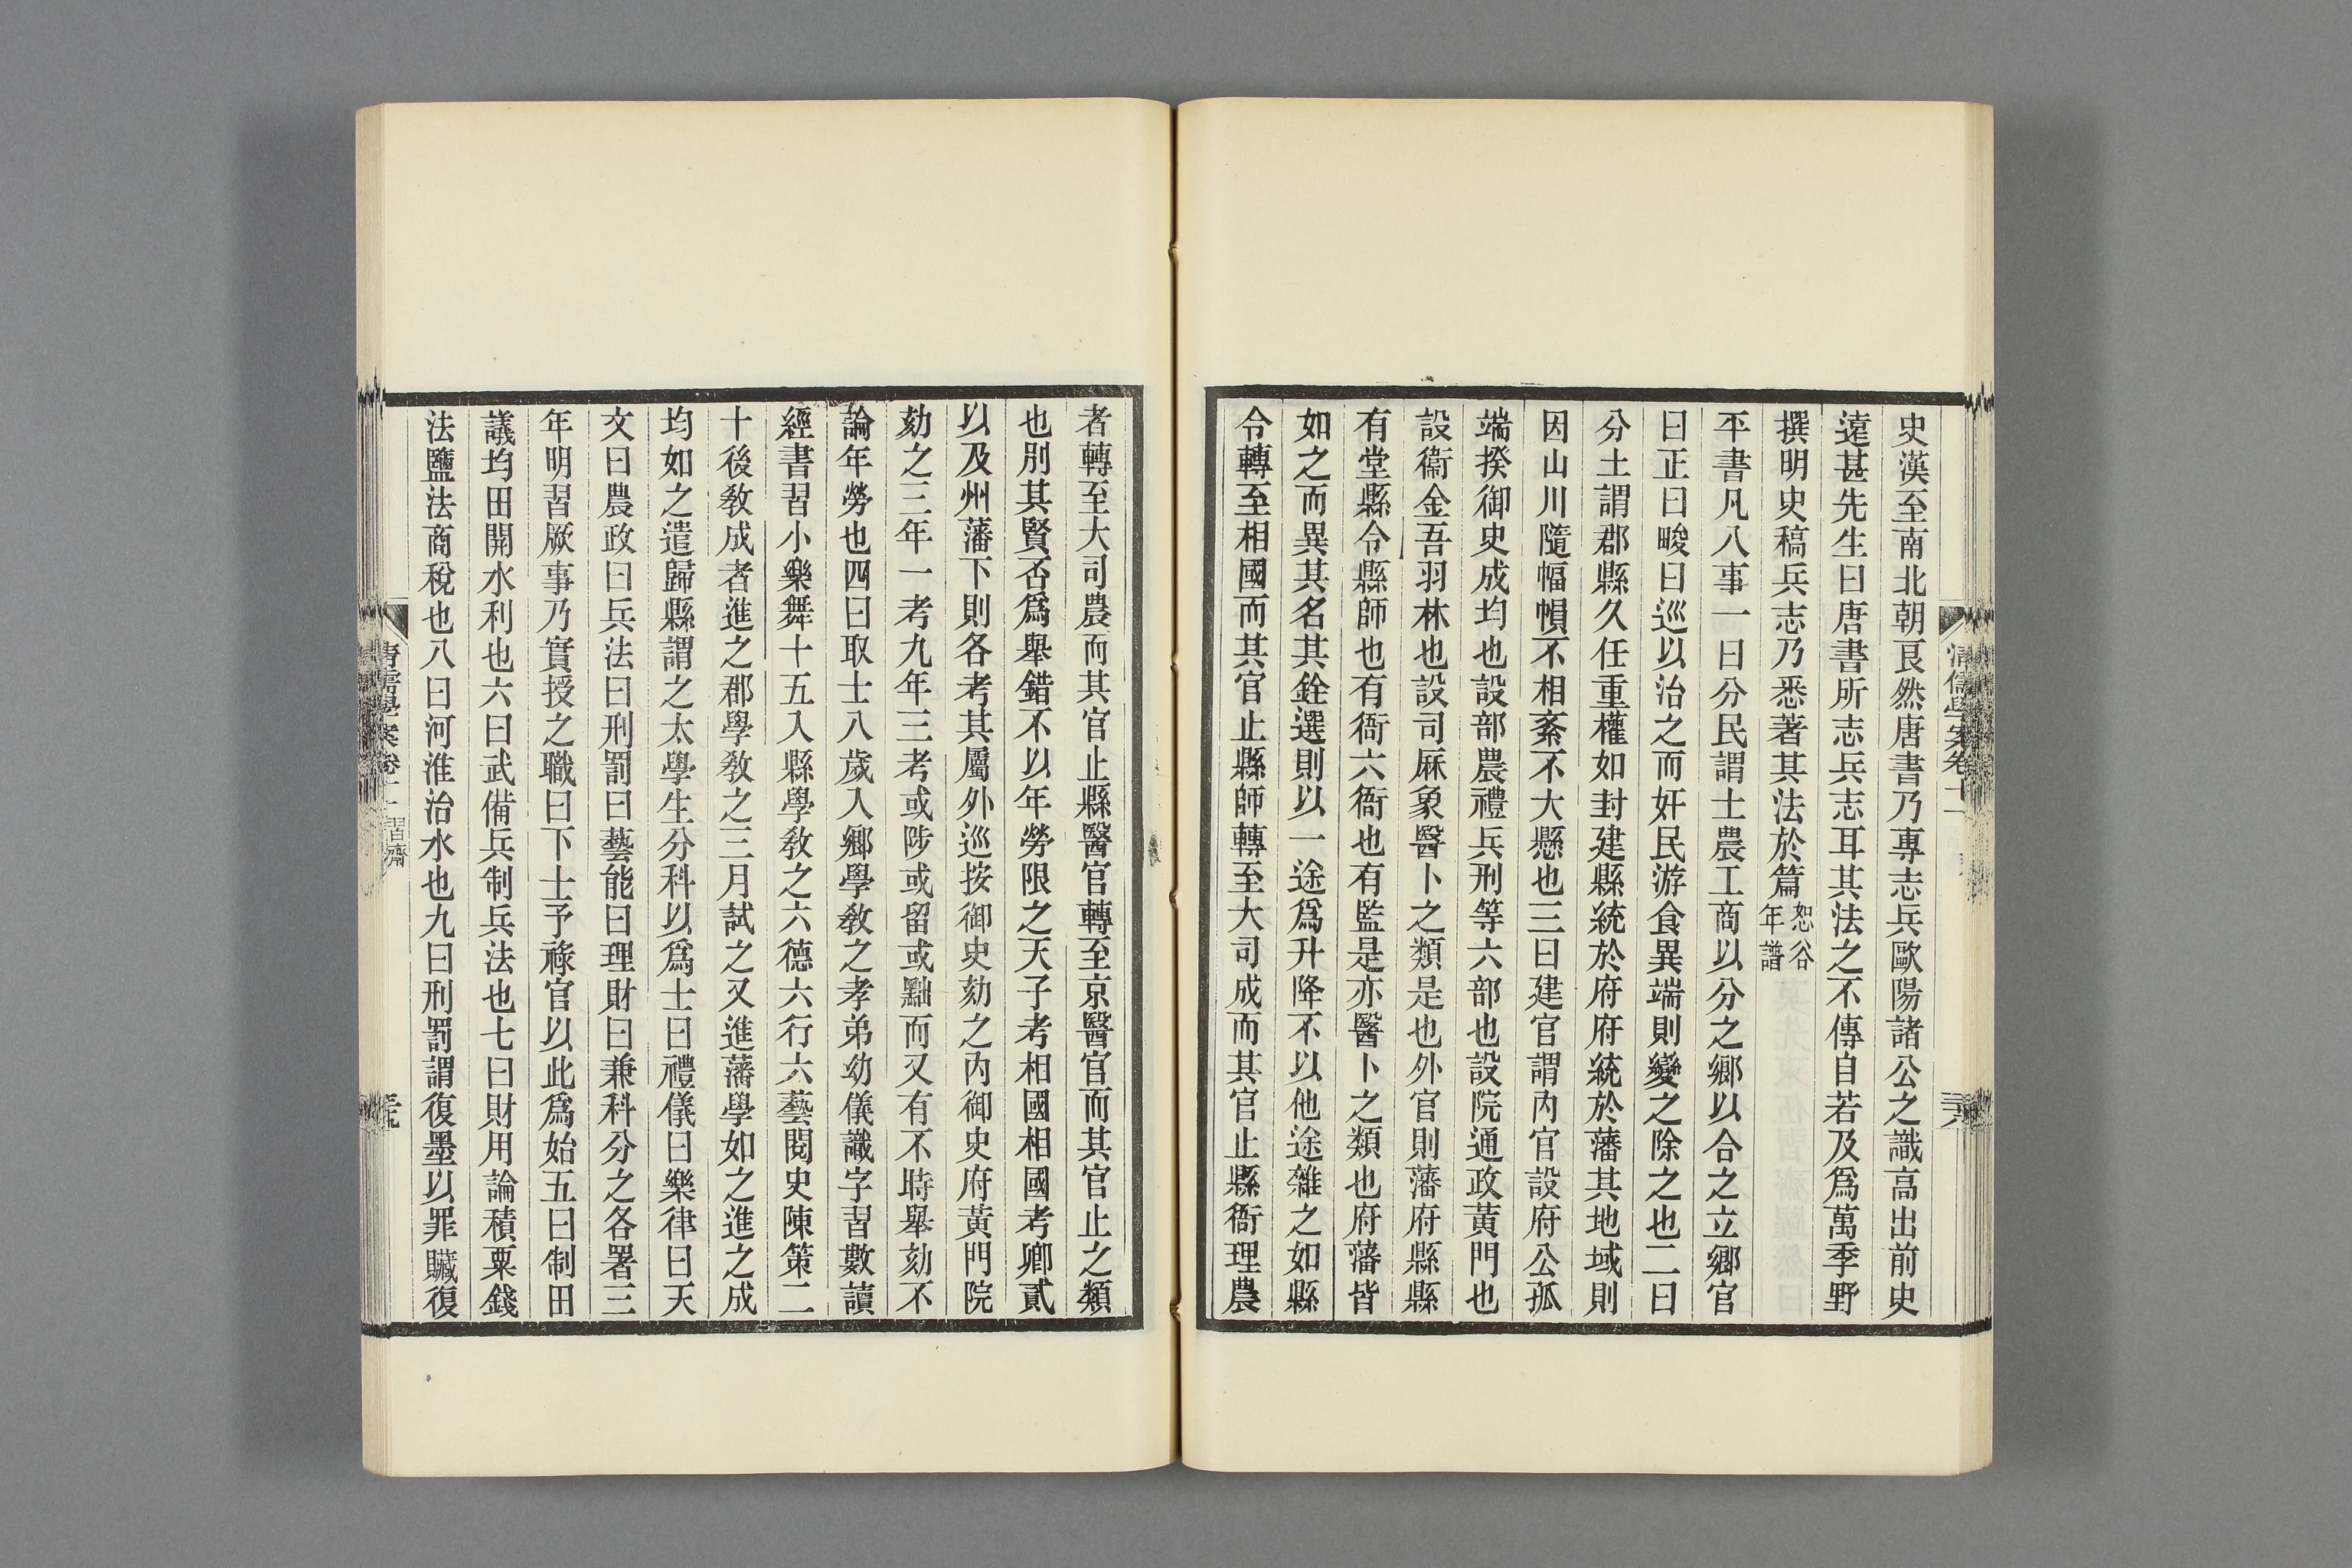 清儒學案卷十一
三六
史漢至南北朝㫰然唐書乃專志兵歐陽諸公之識高出前史
遠甚先生曰唐書所志兵志耳其法之不傳自若及爲萬季野
撰明史稿兵志乃悉著其法於篇恕谷年譜
平書凡八事一曰分民謂士農工商以分之鄉以合之立鄉官
曰正曰畯曰巡以治之而奸民游食異端則變之除之也二曰
分土謂郡縣久任重權如封建縣統於府府統於藩其地域則
因山川隨幅幀不相紊不大懸也三曰建官謂內官設府公孤
端揆御史成均也設部農禮兵刑等六部也設院通政黃門也
設衞金吾羽林也設司厤象醫卜之類是也外官則藩府縣縣
有堂縣令縣師也有衙六衙也有監是亦醫卜之類也府藩皆
如之而異其名其銓選則以一途爲升降不以他途雜之如縣
令轉至相國而其官止縣師轉至大司成而其官止縣衙理農
者轉至大司農而其官止縣醫官轉至京醫官而其官止之類
也別其賢否爲舉錯不以年勞限之天子考相國相國考卿貳
以及州藩下則各考其屬外巡按御史劾之內御史府黃門院
劾之三年一考九年三考或陟或留或黜而又有不時舉劾不
論年勞也四曰取士八歲入鄉學敎之孝弟幼儀識字習數讀
經書習小樂舞十五入縣學敎之六德六行六藝閱史陳策二
十後敎成者進之郡學敎之三月試之又進藩學如之進之成
均如之遣歸縣謂之太學生分科以爲士曰禮儀曰樂律曰天
文曰農政曰兵法曰刑罰曰藝能曰理財曰兼科分之各署三
年明習厥事乃實授之職曰下士予祿官以此爲始五曰制田
議均田開水利也六曰武備兵制兵法也七曰財用論積粟錢
法鹽法商稅也八曰河淮治水也九曰刑罰謂復墨以罪贓復
清儒學案卷十一 習齋